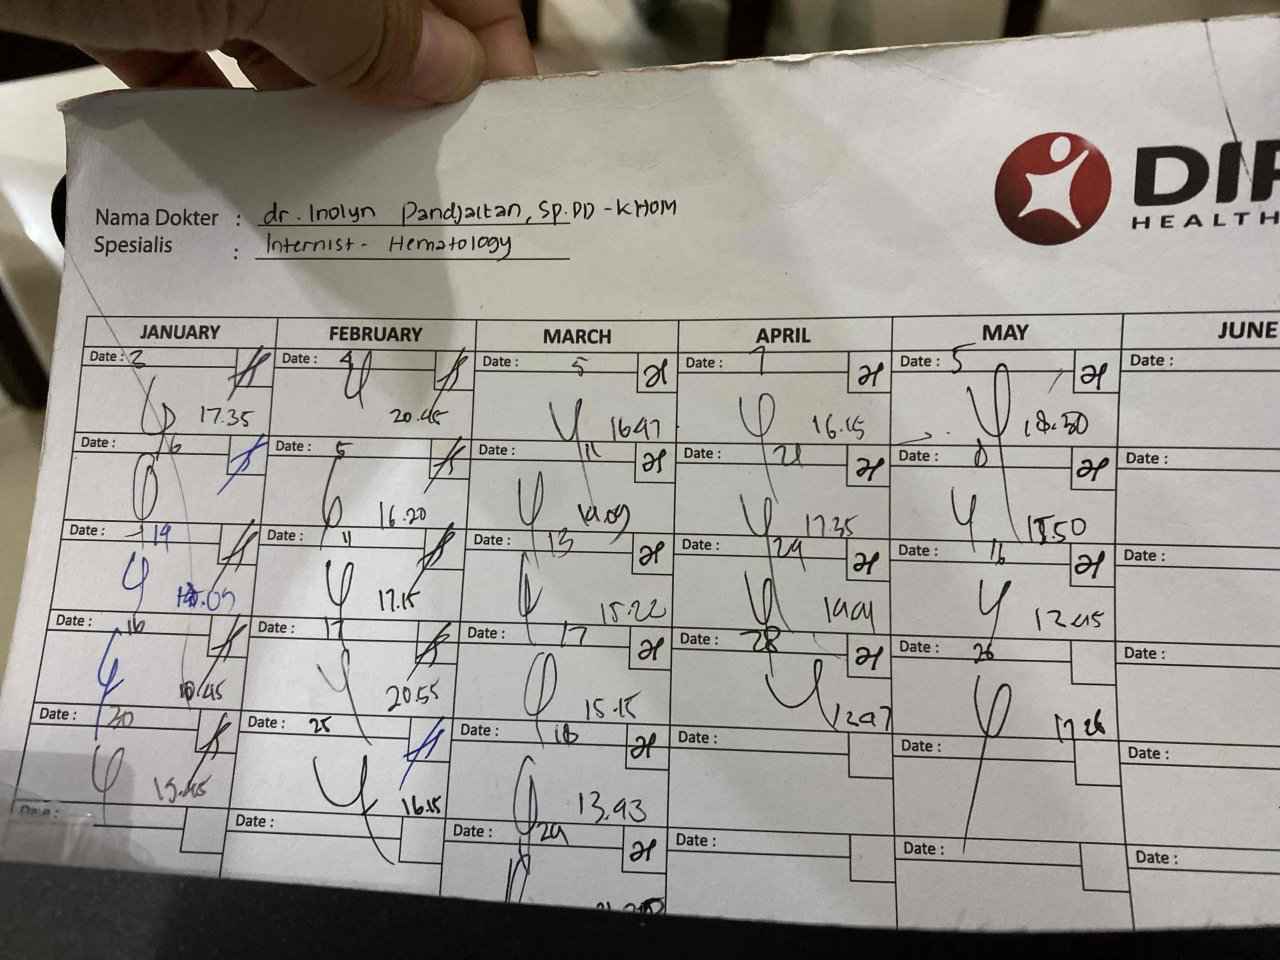 DI
HEALTH
Nama Dokter : dr. Inolyn Pandjaitan, Sp.PD-KHOM
Spesialis : Internist - Hematology
JANUARY FEBRUARY MARCH APRIL MAY JUNE
Date : 2 Date : 4 Date : 5 Date : 7 Date : 5 Date :
17.35 20.45 1647 16.15 18.50
Date : 6 Date : 5 Date : 11 Date : 21 Date : 8 Date :
16.20 14.09 17.35 15.50
Date : 14 Date : 11 Date : 13 Date : 24 Date : 16 Date :
17.15 15.22 1444 12.45
Date : 16 Date : 17 Date : 17 Date : 28 Date : 26 Date :
20.55 15.15 1247 17 26
Date : 30 Date : 25 Date : 18 Date : Date : Date :
15.45 16.15 13.43
Date : Date : Date : 24 Date : Date : Date :